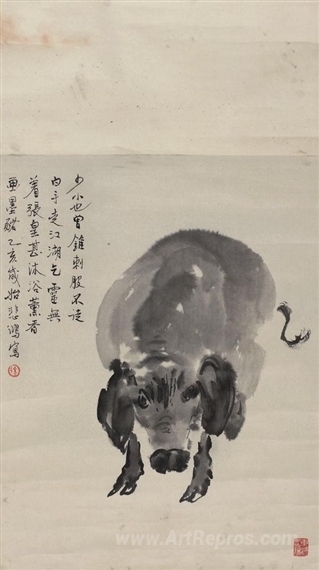 少小也曾錐刺股不徒
白手走江湖乞靈無
着張皇甚沐浴薰香
畫墨豬 乙亥歲始悲鴻寫
www.ArtRepros.com